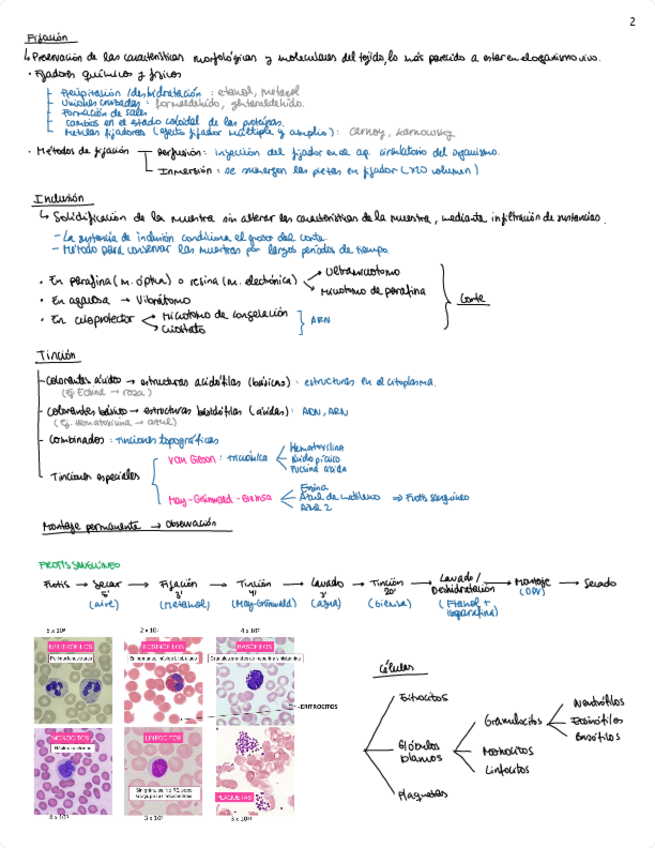 2
Fijación
↳ Preservación de las características morfológicas y moleculares del tejido, lo más parecido a estar en el organismo vivo.
• Fijadores químicos y físicos
Precipitación / deshidratación : etanol, metanol
Uniones cruzadas : formaldehído, glutaraldehído.
Formación de sales
Cambios en el estado coloidal de las proteínas.
Mezclas fijadoras (efecto fijador múltiple y amplio) : Carnoy, Karnowsky
• Métodos de fijación
Perfusión : inyección del fijador en el ap. circulatorio del organismo.
Inmersión : se sumergen las piezas en fijador (x20 volumen)
Inclusión
↳ Solidificación de la muestra sin alterar las características de la muestra, mediante infiltración de sustancias.
- La sustancia de inclusión condiciona el grosor del corte.
- Método para conservar las muestras por largos periodos de tiempo.
• En parafina (m. óptica) o resina (m. electrónica)
Ultramicrotomo
Microtomo de parafina
• En agarosa → Vibrátomo
• En crioprotector
Microtomo de congelación
Criostato
ARN
Corte
Tinción
Colorantes ácidos → estructuras acidófilas (básicas) : estructuras en el citoplasma.
(Ej. Eosina → rosa)
Colorantes básicos → estructuras basófilas (ácidas) : ADN, ARN
(Ej. Hematoxilina → azul)
Combinados : Tinciones topográficas
Tinciones especiales
Van Gieson : tricrómica
Hematoxilina
Ácido pícrico
Fucsina ácida
May-Grünwald-Giemsa
Eosina
Azul de metileno
Azur 2
⇒ Frotis sanguíneo
Montaje permanente → Observación
FROTIS SANGUÍNEO
Frotis → Secar → Fijación → Tinción → Lavado → Tinción → Lavado / Deshidratación → Montaje → Secado
5' 3' 4' 3' 20'
(aire) (Metanol) (May-Grünwald) (agua) (Giemsa) (Etanol + isoparafina) (DPX)
NEUTRÓFILOS
Polimorfonucleares
EOSINÓFILOS
BASÓFILOS
ERITROCITOS
MONOCITOS
LINFOCITOS
PLAQUETAS
Células
Eritrocitos
Glóbulos blancos
Granulocitos
Neutrófilos
Eosinófilos
Basófilos
Monocitos
Linfocitos
Plaquetas